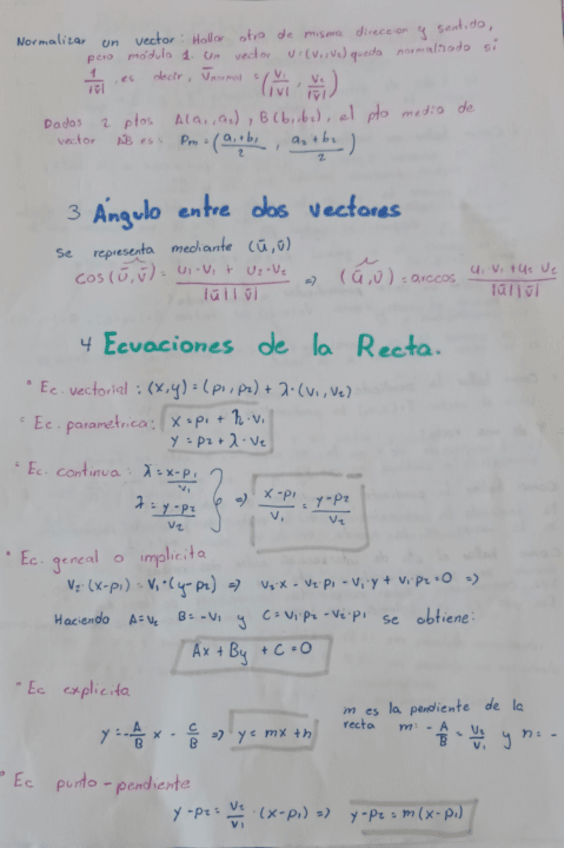 Normalizar un vector: Hallar otro de misma direccion y sentido,
pero módulo 1. Un vector v=(v₁,v₂) queda normalizado si
1/|v̄|, es decir, v̄normal = (v₁/|v̄|, v₂/|v̄|)
Dados 2 ptos A(a₁,a₂), B(b₁,b₂), el pto medio de
vector AB es: Pm = (a₁+b₁/2, a₂+b₂/2)
3 Ángulo entre dos vectores
Se representa mediante (ū,v̄)
cos(ū,v̄) = u₁·v₁ + u₂·v₂/|ū||v̄| => (ū,v̄) = arccos u₁·v₁+u₂·v₂/|ū||v̄|
4 Ecuaciones de la Recta.
* Ec. vectorial: (x,y)=(p₁,p₂)+λ·(v₁,v₂)
* Ec. parametrica: x=p₁+λ·v₁
y=p₂+λ·v₂
* Ec. continua: λ=x-p₁/v₁
λ=y-p₂/v₂ } => x-p₁/v₁ = y-p₂/v₂
* Ec. general o implicita
v₂·(x-p₁)=v₁·(y-p₂) => v₂·x-v₂·p₁-v₁·y+v₁·p₂=0 =>
Haciendo A=v₂ B=-v₁ y C=v₁·p₂-v₂·p₁ se obtiene:
Ax+By+C=0
* Ec explicita
m es la pendiente de la
y=-A/B x - C/B => y=mx+n recta m=-A/B=v₂/v₁ y n=-
* Ec punto-pendiente
y-p₂=v₂/v₁·(x-p₁) => y-p₂=m(x-p₁)